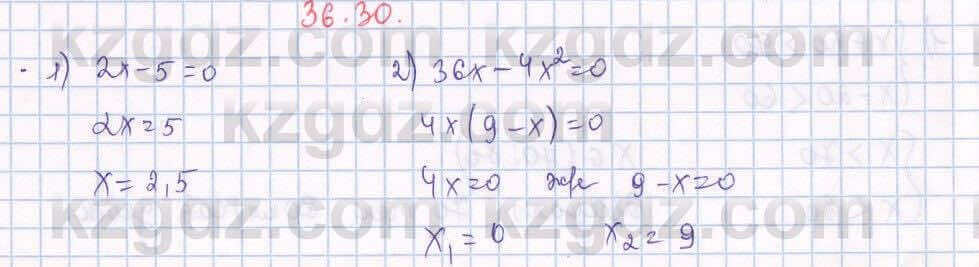 36.30.
1) 2x-5=0
2x=5
x=2,5
2) 36x-4x²=0
4x(9-x)=0
4x=0 және 9-x=0
x₁=0 x₂=9
kzgdz.com kzgdz.com
kzgdz.com
kzgdz.com kzgdz.com